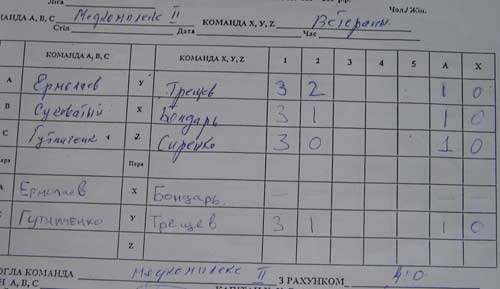 Ліга Чол./Жін.
МАНДА А, В, С Медкомплекс II КОМАНДА X, Y, Z Ветераны
Стіл Дата Час
КОМАНДА А, В, С КОМАНДА X, Y, Z 1 2 3 4 5 А X
А Ермолаев Y Трещев 3 2 1 0
В X Бондарь 3 1 1 0
С Z Сиренко 3 0 1 0
Пара
А Ермолаев X Бондарь - - - -
Y Трещев 3 1 1 0
Z
ОГЛА КОМАНДА Медкомплекс II З РАХУНКОМ 4:0
А, В, С